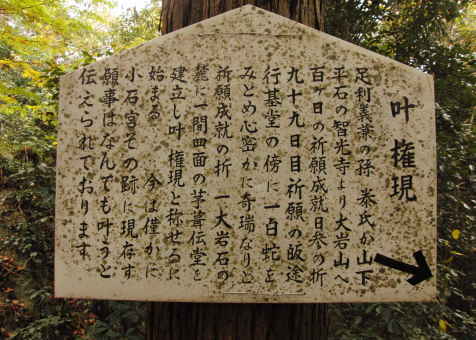 叶権現
足利義兼の孫 泰氏が山下
平石の智光寺より大岩山へ
百ヶ日の祈願成就日参の折
九十九日目祈願の皈途
行基堂の傍に一白蛇を
みとめ心密かに奇瑞なりと
祈願成就の折 一大岩石の
麓に一間四面の茅葺伝堂を
建立し叶権現と称せるに
始まる 今は僅かに
小石宮その跡に現存す
願事はなんでも叶うと
伝えられております